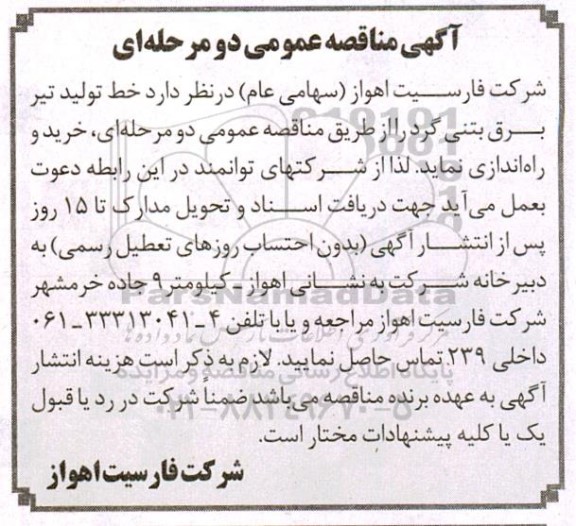 آگهی مناقصه عمومی دو مرحله‌ای
شرکت فارسیت اهواز (سهامی عام) درنظر دارد خط تولید تیر
برق بتنی گرد را از طریق مناقصه عمومی دو مرحله‌ای، خرید و
راه‌اندازی نماید. لذا از شرکتهای توانمند در این رابطه دعوت
بعمل می‌آید جهت دریافت اسناد و تحویل مدارک تا ۱۵ روز
پس از انتشار آگهی (بدون احتساب روزهای تعطیل رسمی) به
دبیرخانه شرکت به نشانی اهواز ـ کیلومتر ۹ جاده خرمشهر
ParsNamadData
شرکت فارسیت اهواز مراجعه و یا با تلفن ۴ ـ ۳۳۳۱۳۰۴۱ ـ ۰۶۱
داخلی ۲۳۹ تماس حاصل نمایید. لازم به ذکر است هزینه انتشار
پایگاه اطلاع رسانی مناقصه و مزایده
آگهی به عهده برنده مناقصه می‌باشد ضمناً شرکت در رد یا قبول
۰۲۱-۸۸۳۴۹۶۷۰-۵
یک یا کلیه پیشنهادات مختار است.
شرکت فارسیت اهواز